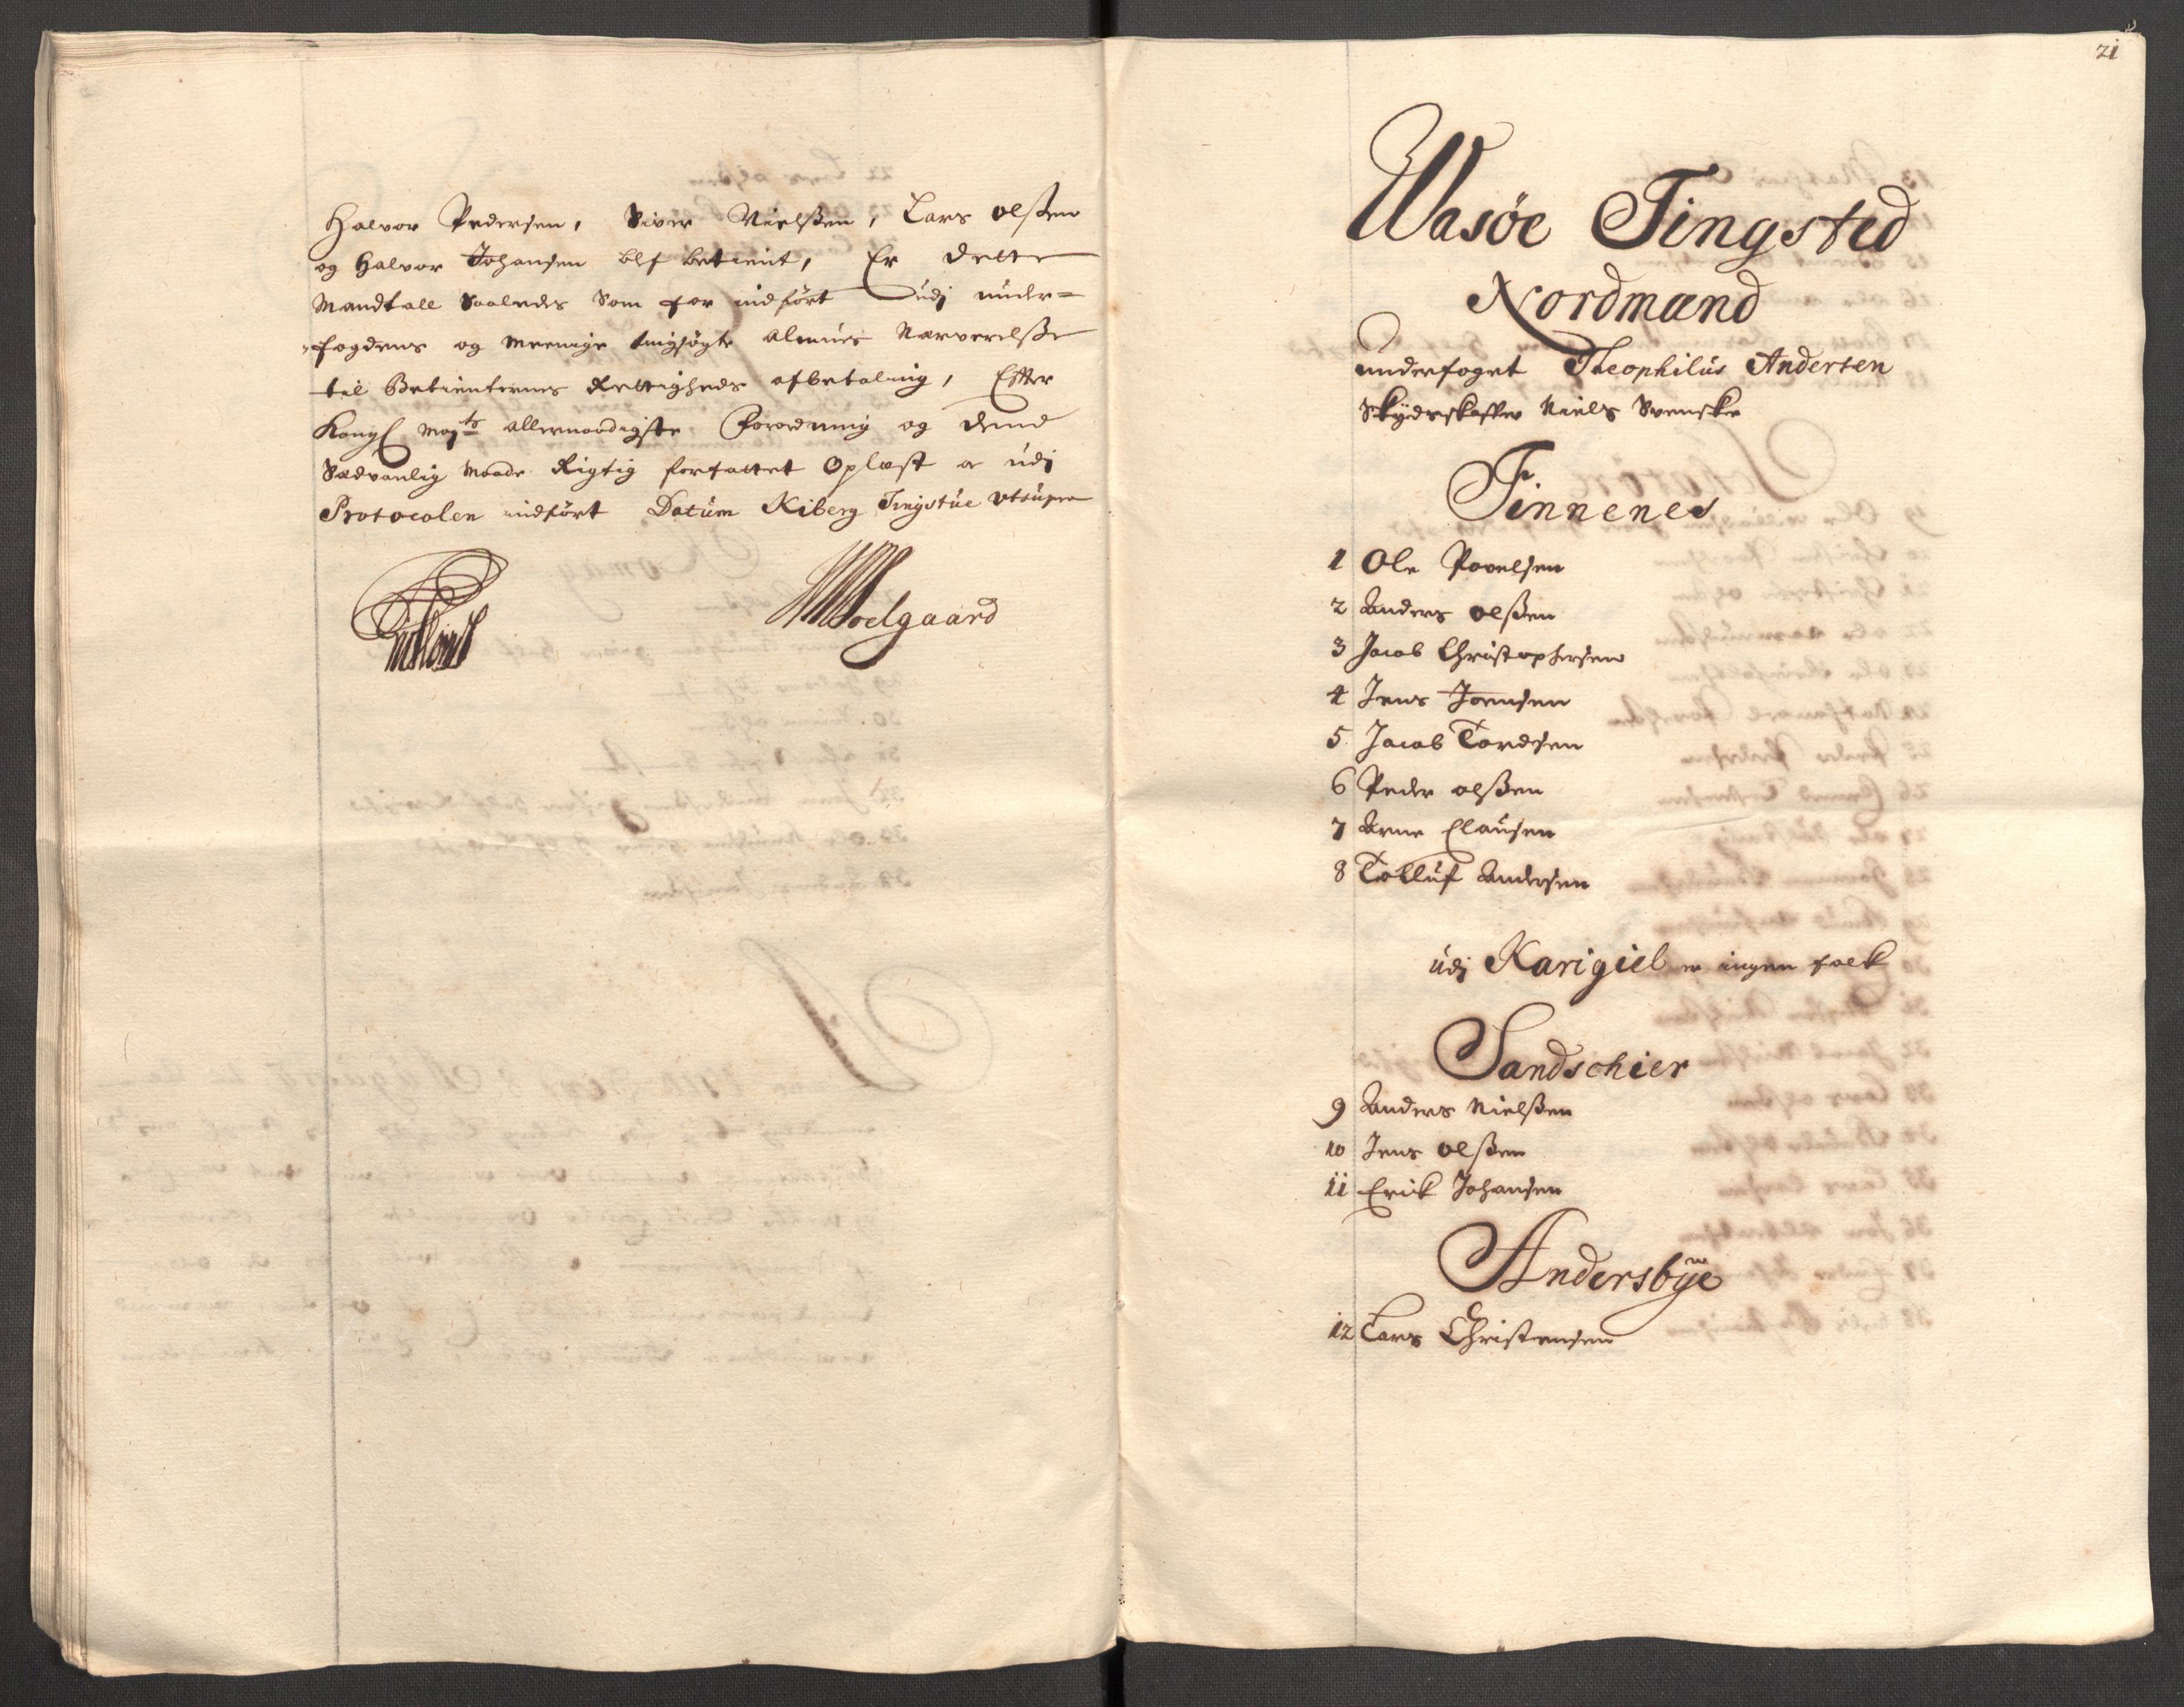 Halvor Pedersen, Siver Nielßen, Lars olßen
og Halvor Johansen blf betient, Er dette
Mandtall Saaledes Som for indført udj under=
fogdens og meenige tingsøgte almues Nærverelße
til Betienternes Rettigheds afbetaling, Effter
Kongl mayts allernaadigste Forordning og dend
Sædvanlig Maade Rigtig forfattet Oplæst a udj
Protocolen indført Datum Kiberg Tingstue utsupra
Soelgaard
21
Wasøe Tingsted
Nordmænd
underfoget Theophilus Andersen
Skydsskaffer Niels Svenske
Finnenes
1 Ole Povelsen
2 Anders olßen
3 Jacob Christophersen
4 Jens Joensen
5 Jacob Tordsen
6 Peder olßen
7 Arne Clausen
8 Tolluf Andersen
udj Karigiel er ingen folk
Sandschier
9 Anders Nielßen
10 Jens olßen
11 Erick Johansen
Andersbye
12 Lars Christensen